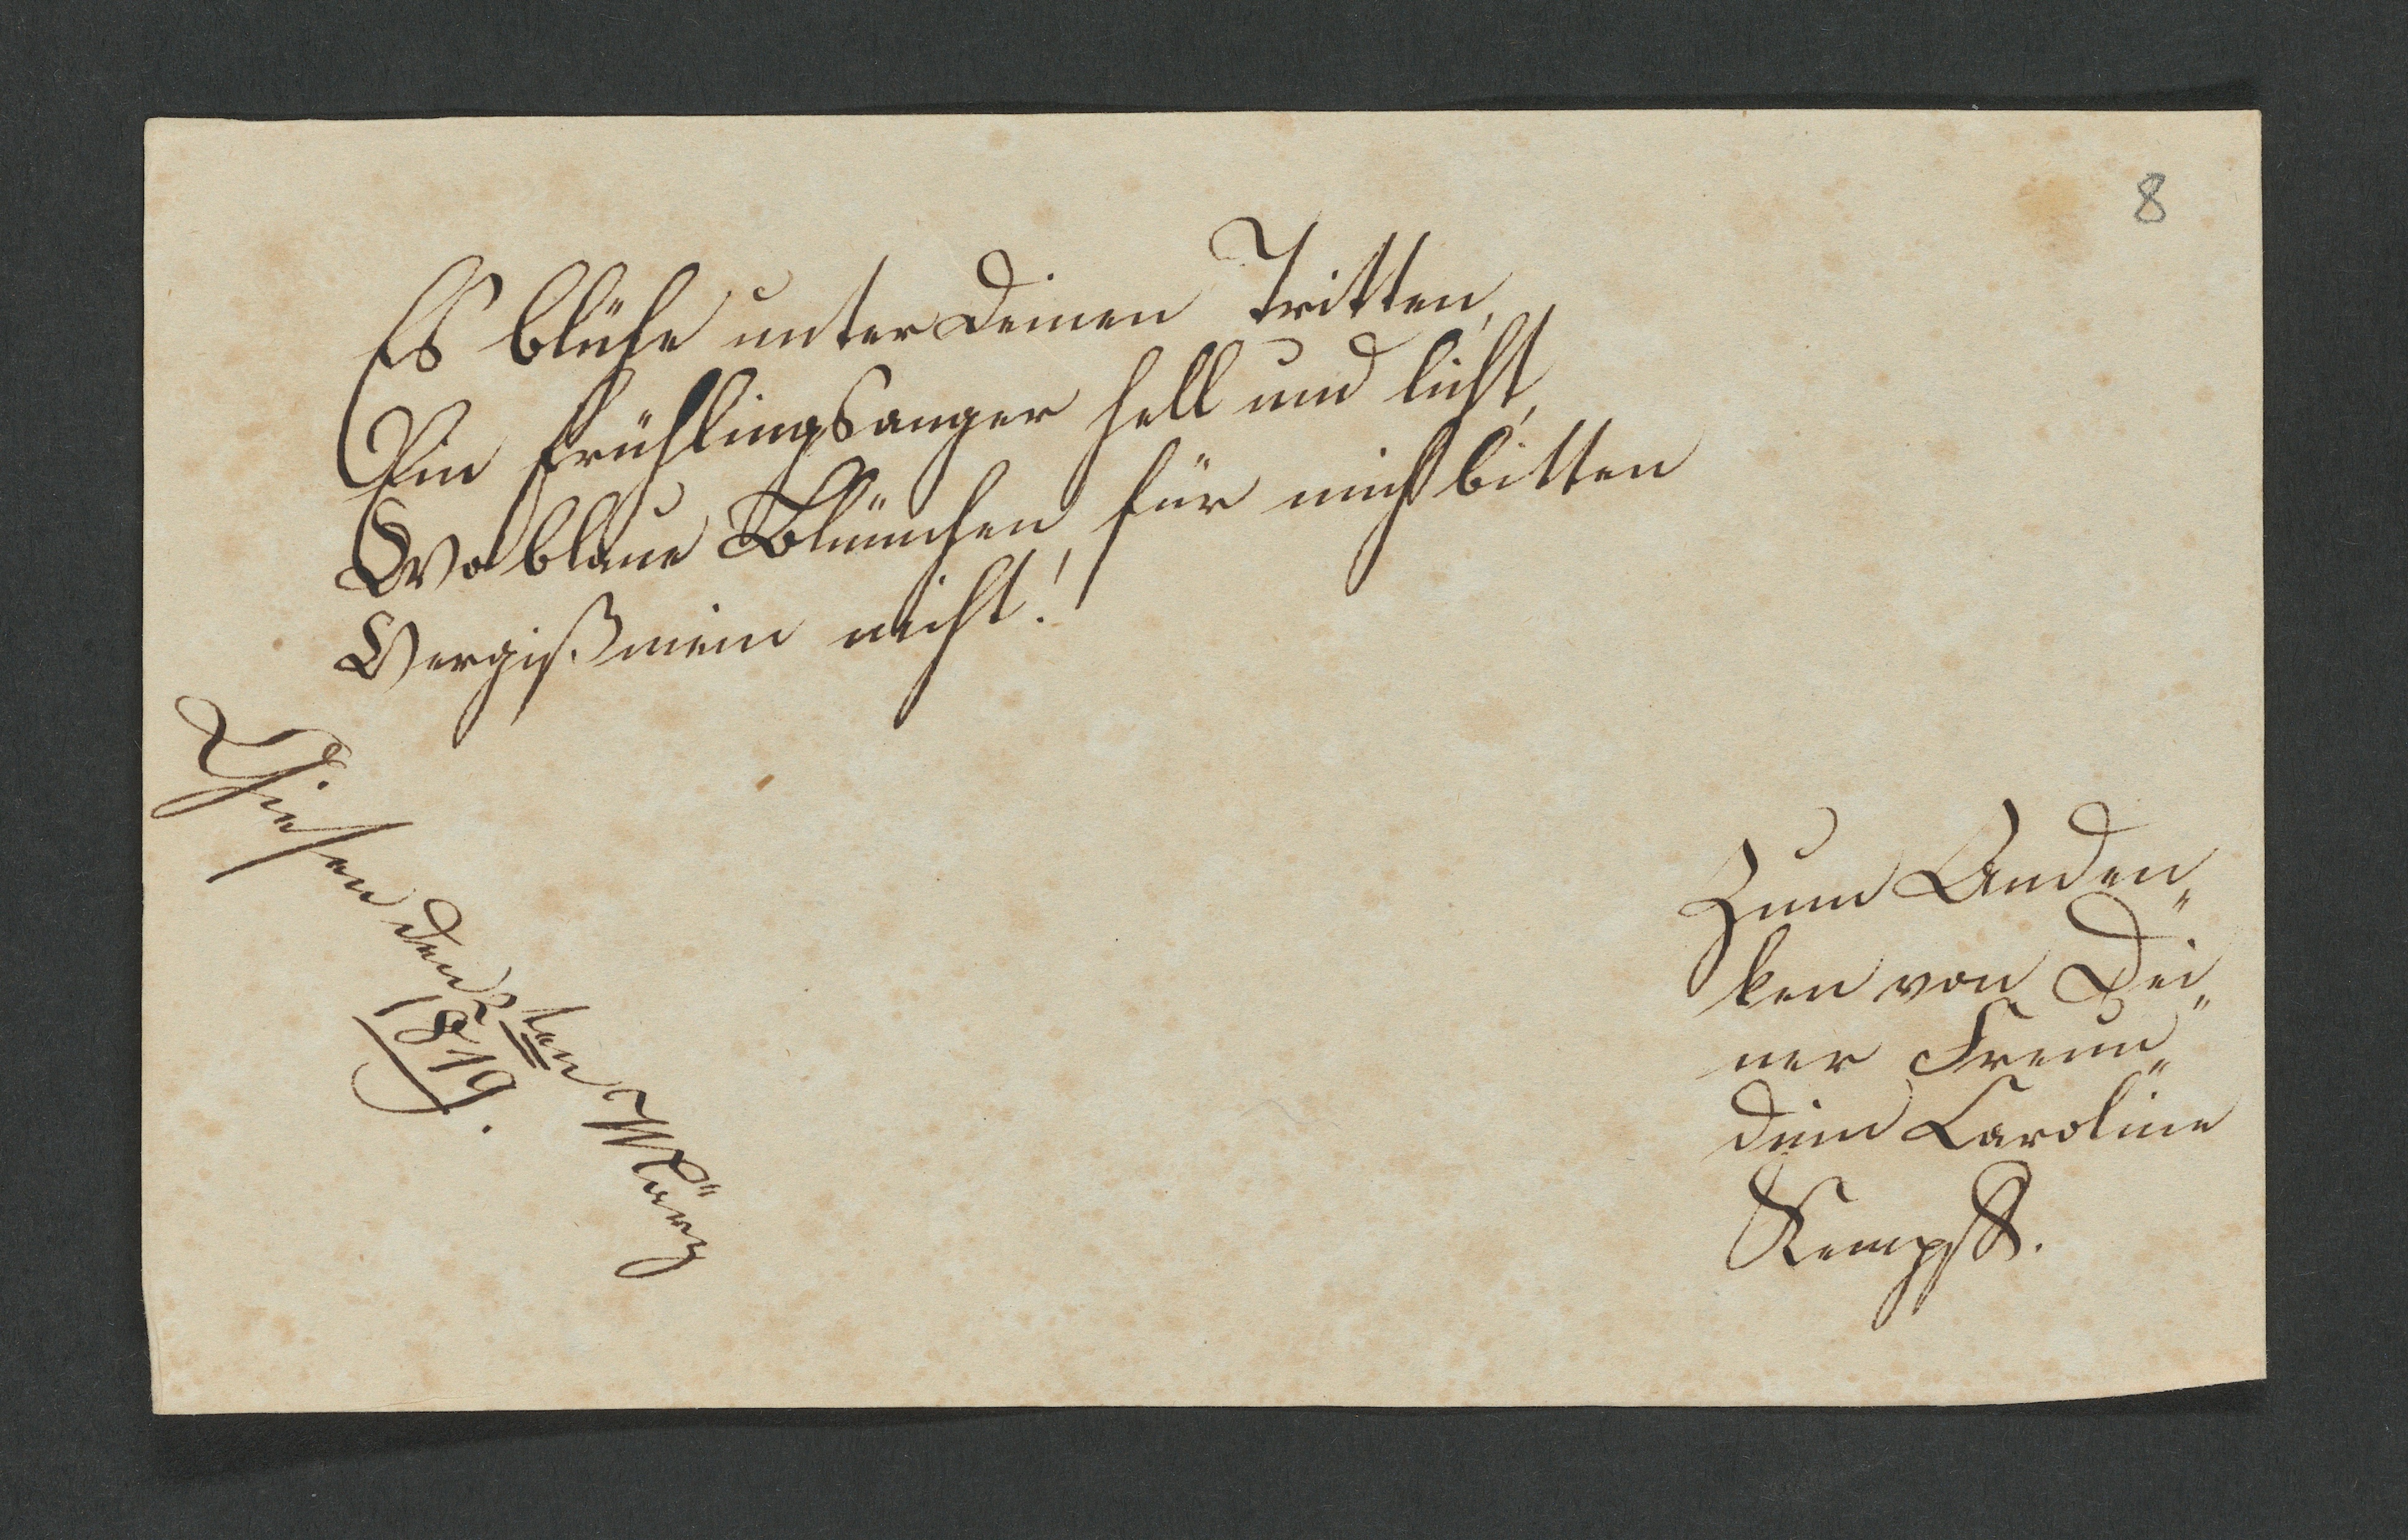 8
Es blühe unter deinen Tritten,
Ein Frühlingsanger hell und licht,
Wo blaue Blümchen, für mich bitten
Vergiß mein nicht!
den 2ten März
1819.
Zum Anden„
ken von Dei„
ner Freun„
dinn Caroline